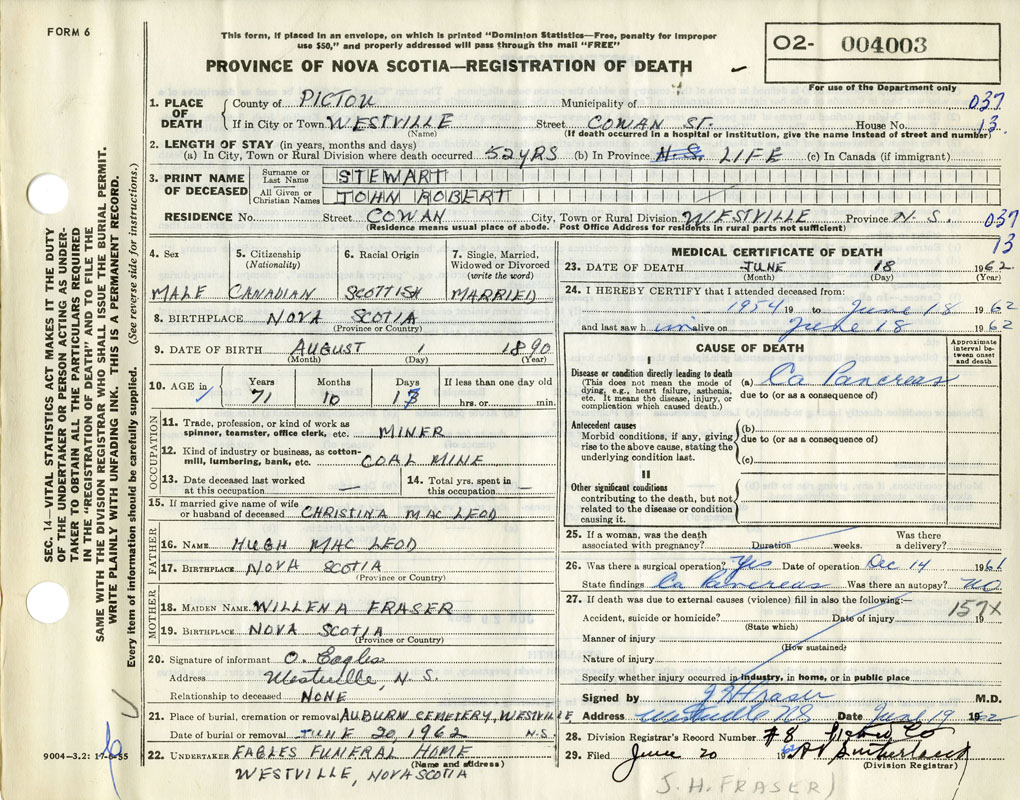 FORM 6
This form, if placed in an envelope, on which is printed "Dominion Statistics—Free, penalty for improper
use $50," and properly addressed will pass through the mail "FREE"
O2- 004003
PROVINCE OF NOVA SCOTIA—REGISTRATION OF DEATH
For use of the Department only
1. PLACE OF DEATH
County of PICTOU Municipality of 037
If in City or Town WESTVILLE Street COWAN ST. House No. 13
(Name) (If death occurred in a hospital or institution, give the name instead of street and number)
2. LENGTH OF STAY (in years, months and days)
(a) In City, Town or Rural Division where death occurred 52 YRS (b) In Province N.S. LIFE (c) In Canada (if immigrant)
3. PRINT NAME OF DECEASED
Surname or Last Name STEWART
All Given or Christian Names JOHN ROBERT
RESIDENCE No. Street COWAN City, Town or Rural Division WESTVILLE Province N.S. 037
(Residence means usual place of abode. Post Office Address for residents in rural parts not sufficient) 13
4. Sex 5. Citizenship (Nationality) 6. Racial Origin 7. Single, Married, Widowed or Divorced (write the word)
MALE CANADIAN SCOTTISH MARRIED
8. BIRTHPLACE NOVA SCOTIA
(Province or Country)
9. DATE OF BIRTH AUGUST 1 1890
(Month) (Day) (Year)
10. AGE in Years Months Days If less than one day old
71 10 17 hrs. or min.
OCCUPATION
11. Trade, profession, or kind of work as
spinner, teamster, office clerk, etc. MINER
12. Kind of industry or business, as cotton-
mill, lumbering, bank, etc. COAL MINE
13. Date deceased last worked at this occupation — 14. Total yrs. spent in this occupation —
15. If married give name of wife
or husband of deceased CHRISTINA MAC LEOD
FATHER
16. NAME HUGH MAC LEOD
17. BIRTHPLACE NOVA SCOTIA
(Province or Country)
MOTHER
18. MAIDEN NAME WILLENA FRASER
19. BIRTHPLACE NOVA SCOTIA
(Province or Country)
20. Signature of informant O. Eagles
Address Westville, N. S.
Relationship to deceased NONE
21. Place of burial, cremation or removal AUBURN CEMETERY, WESTVILLE
Date of burial or removal JUNE 20, 1962 N.S.
22. UNDERTAKER EAGLES FUNERAL HOME
(Name and address)
WESTVILLE, NOVA SCOTIA
MEDICAL CERTIFICATE OF DEATH
23. DATE OF DEATH JUNE 18 1962
(Month) (Day) (Year)
24. I HEREBY CERTIFY that I attended deceased from:
1954 19 to June 18 1962
and last saw h im alive on June 18 1962
CAUSE OF DEATH
Approximate interval between onset and death
I
Disease or condition directly leading to death
(This does not mean the mode of
dying, e.g., heart failure, asthenia,
etc. It means the disease, injury, or
complication which caused death.)
(a) Ca Pancreas
due to (or as a consequence of)
Antecedent causes
Morbid conditions, if any, giving
rise to the above cause, stating the
underlying condition last.
(b)
due to (or as a consequence of)
(c)
II
Other significant conditions
contributing to the death, but not
related to the disease or condition
causing it.
25. If a woman, was the death Was there
associated with pregnancy? Duration weeks. a delivery?
26. Was there a surgical operation? Yes Date of operation Dec 14 1961
State findings Ca Pancreas Was there an autopsy? NO
27. If death was due to external causes (violence) fill in also the following:— 157X
Accident, suicide or homicide? Date of injury 19
(State which)
Manner of injury
(How sustained)
Nature of injury
Specify whether injury occurred in industry, in home, or in public place
Signed by J H Fraser M.D.
Address Westville NS Date June 19 1962
28. Division Registrar's Record Number #8 Pictou Co
29. Filed June 20 19
(Division Registrar)
J. H. FRASER)
SEC. 14—VITAL STATISTICS ACT MAKES IT THE DUTY
OF THE UNDERTAKER OR PERSON ACTING AS UNDER-
TAKER TO OBTAIN ALL THE PARTICULARS REQUIRED
IN THE "REGISTRATION OF DEATH" AND TO FILE THE
SAME WITH THE DIVISION REGISTRAR WHO SHALL ISSUE THE BURIAL PERMIT.
WRITE PLAINLY WITH UNFADING INK. THIS IS A PERMANENT RECORD.
Every item of information should be carefully supplied. (See reverse side for instructions.)